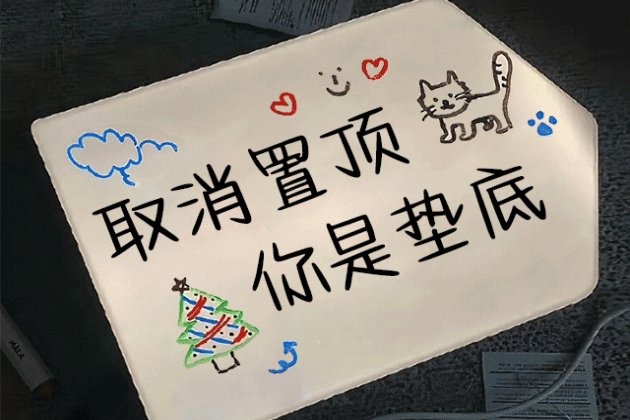 取消置顶
你是垫底